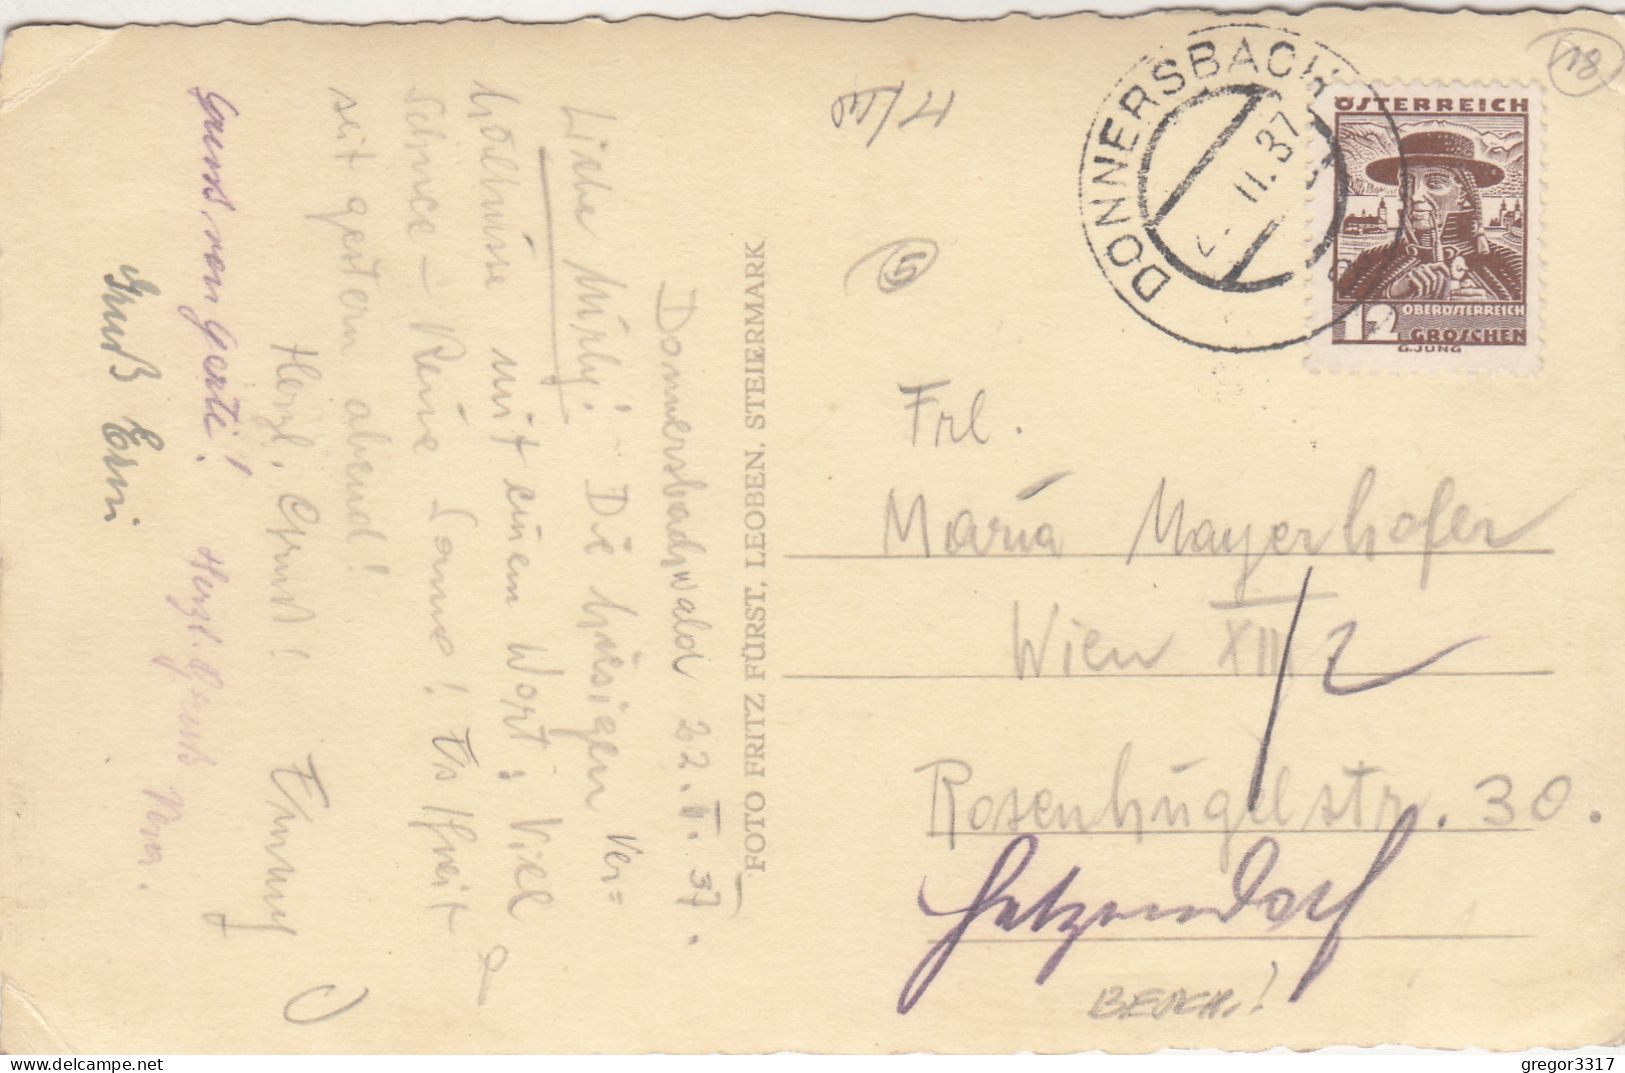 Donnersbachwald 22.II.37.
Liebe Mirly! - Die hiesigen Ver=
hältnisse mit einem Wort: Viel
Schnee - Keine Sonne! Es schneit
seit gestern abend!
Herzl. Gruß! Emmy
Gruss von Gerti! Herzl. Gruß
Gruß Erni
FOTO FRITZ FÜRST, LEOBEN, STEIERMARK
DONNERSBACH
II.37
ÖSTERREICH
OBERÖSTERREICH
12 GROSCHEN
G.JUNG
18
5
Frl.
Maria Mayerhofer
Wien XIII/2
Rosenhügelstr. 30.
Hetzendorf
gregor3317